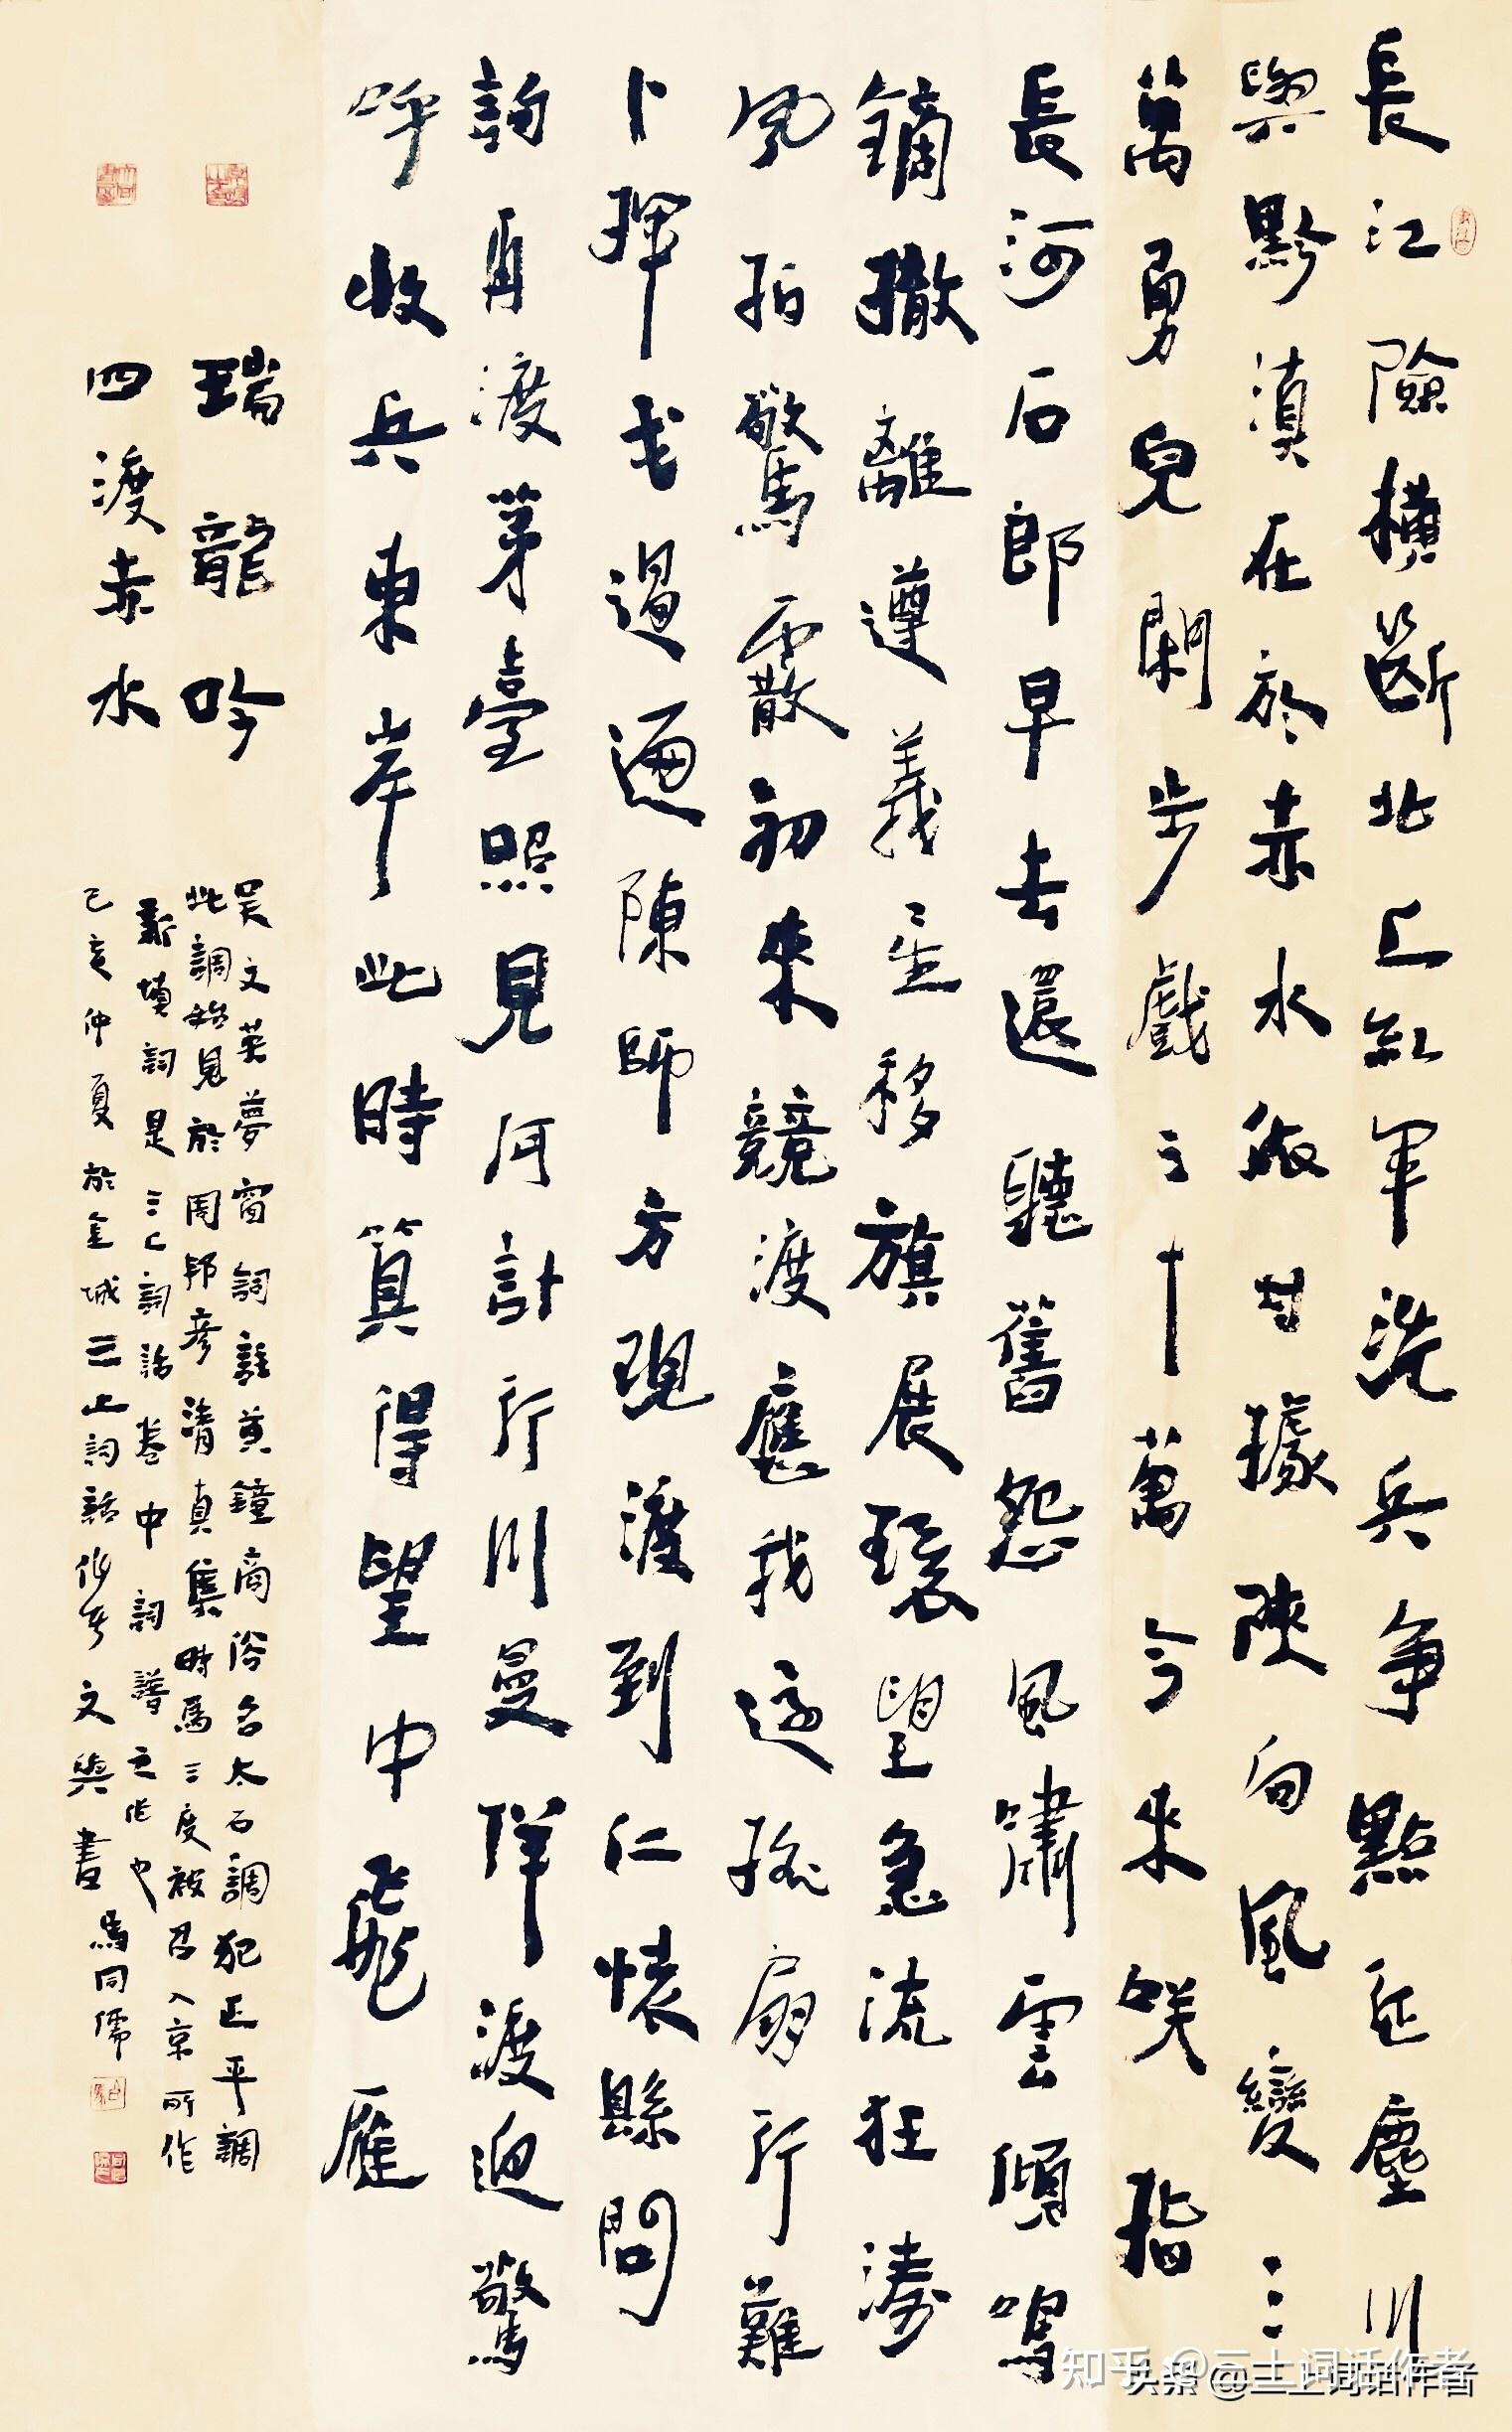 長江險橫斷北上紅軍洗兵爭點征塵川
與黔滇在於赤水做甘據陝向風變三
萬勇兒閑步戲之十萬今來笑指
長河石郎早去還聽舊怨風嘯雲傾鳴
鏑撤離遵義星移旗展環望急流狂濤
風拍驚霰初來競渡應我這孫扇行難
卜揮戈過迴陳師方現渡到仁懷縣問
詢再渡茅臺照見何計行川曼佯渡迎驚
呼收兵東岸此時算得望中飛雁
瑞龍吟
四渡赤水
吴文英夢窗詞註黄鐘商俗名大石調犯正平調
此調始見於周邦彦清真集時爲三度被召入京所作
新填詞是三土詞話卷中詞譜之作也
己亥仲夏於金城三土詞話作者文與書馬同儒
知乎 @三土词话作者
头条 @三土词话作者